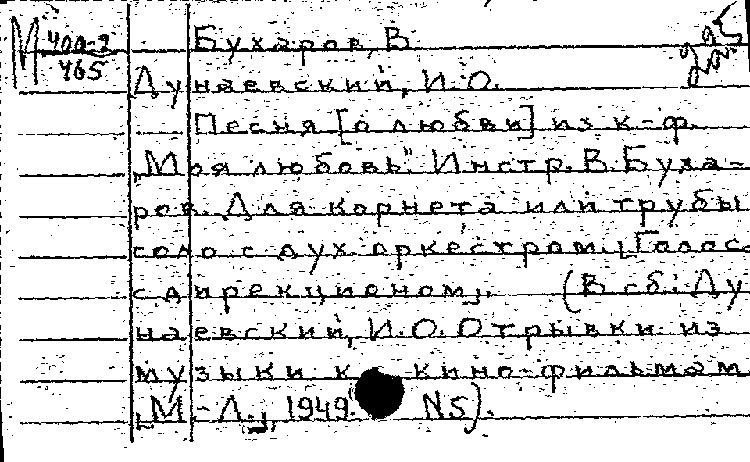 М 400-2
465
Бухаров, В.
Дунаевский, И.О.
Песня [о любви] из к-ф.
„Моя любовь". Инстр. В. Буха-
ров. Для корнета или трубы
соло с дух. оркестром. [Голос
с дирекционом].  (В сб.: Ду
наевский, И.О. Отрывки из
музыки к кино-фильмам
[М.-Л.], 1949. N5).